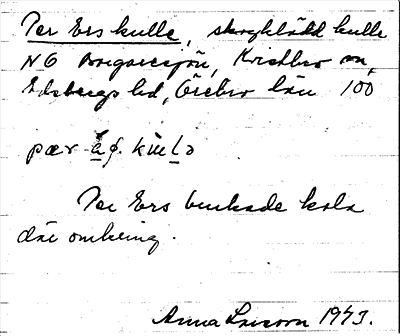 Per Ers kulle, skogklädd kulle
NO Borgaresjön, Kvistbro sn,
Edsbergs hd, Örebro län 100
pær
Per Ers brukade kola
där omkring.
Anna Larsson 1943.